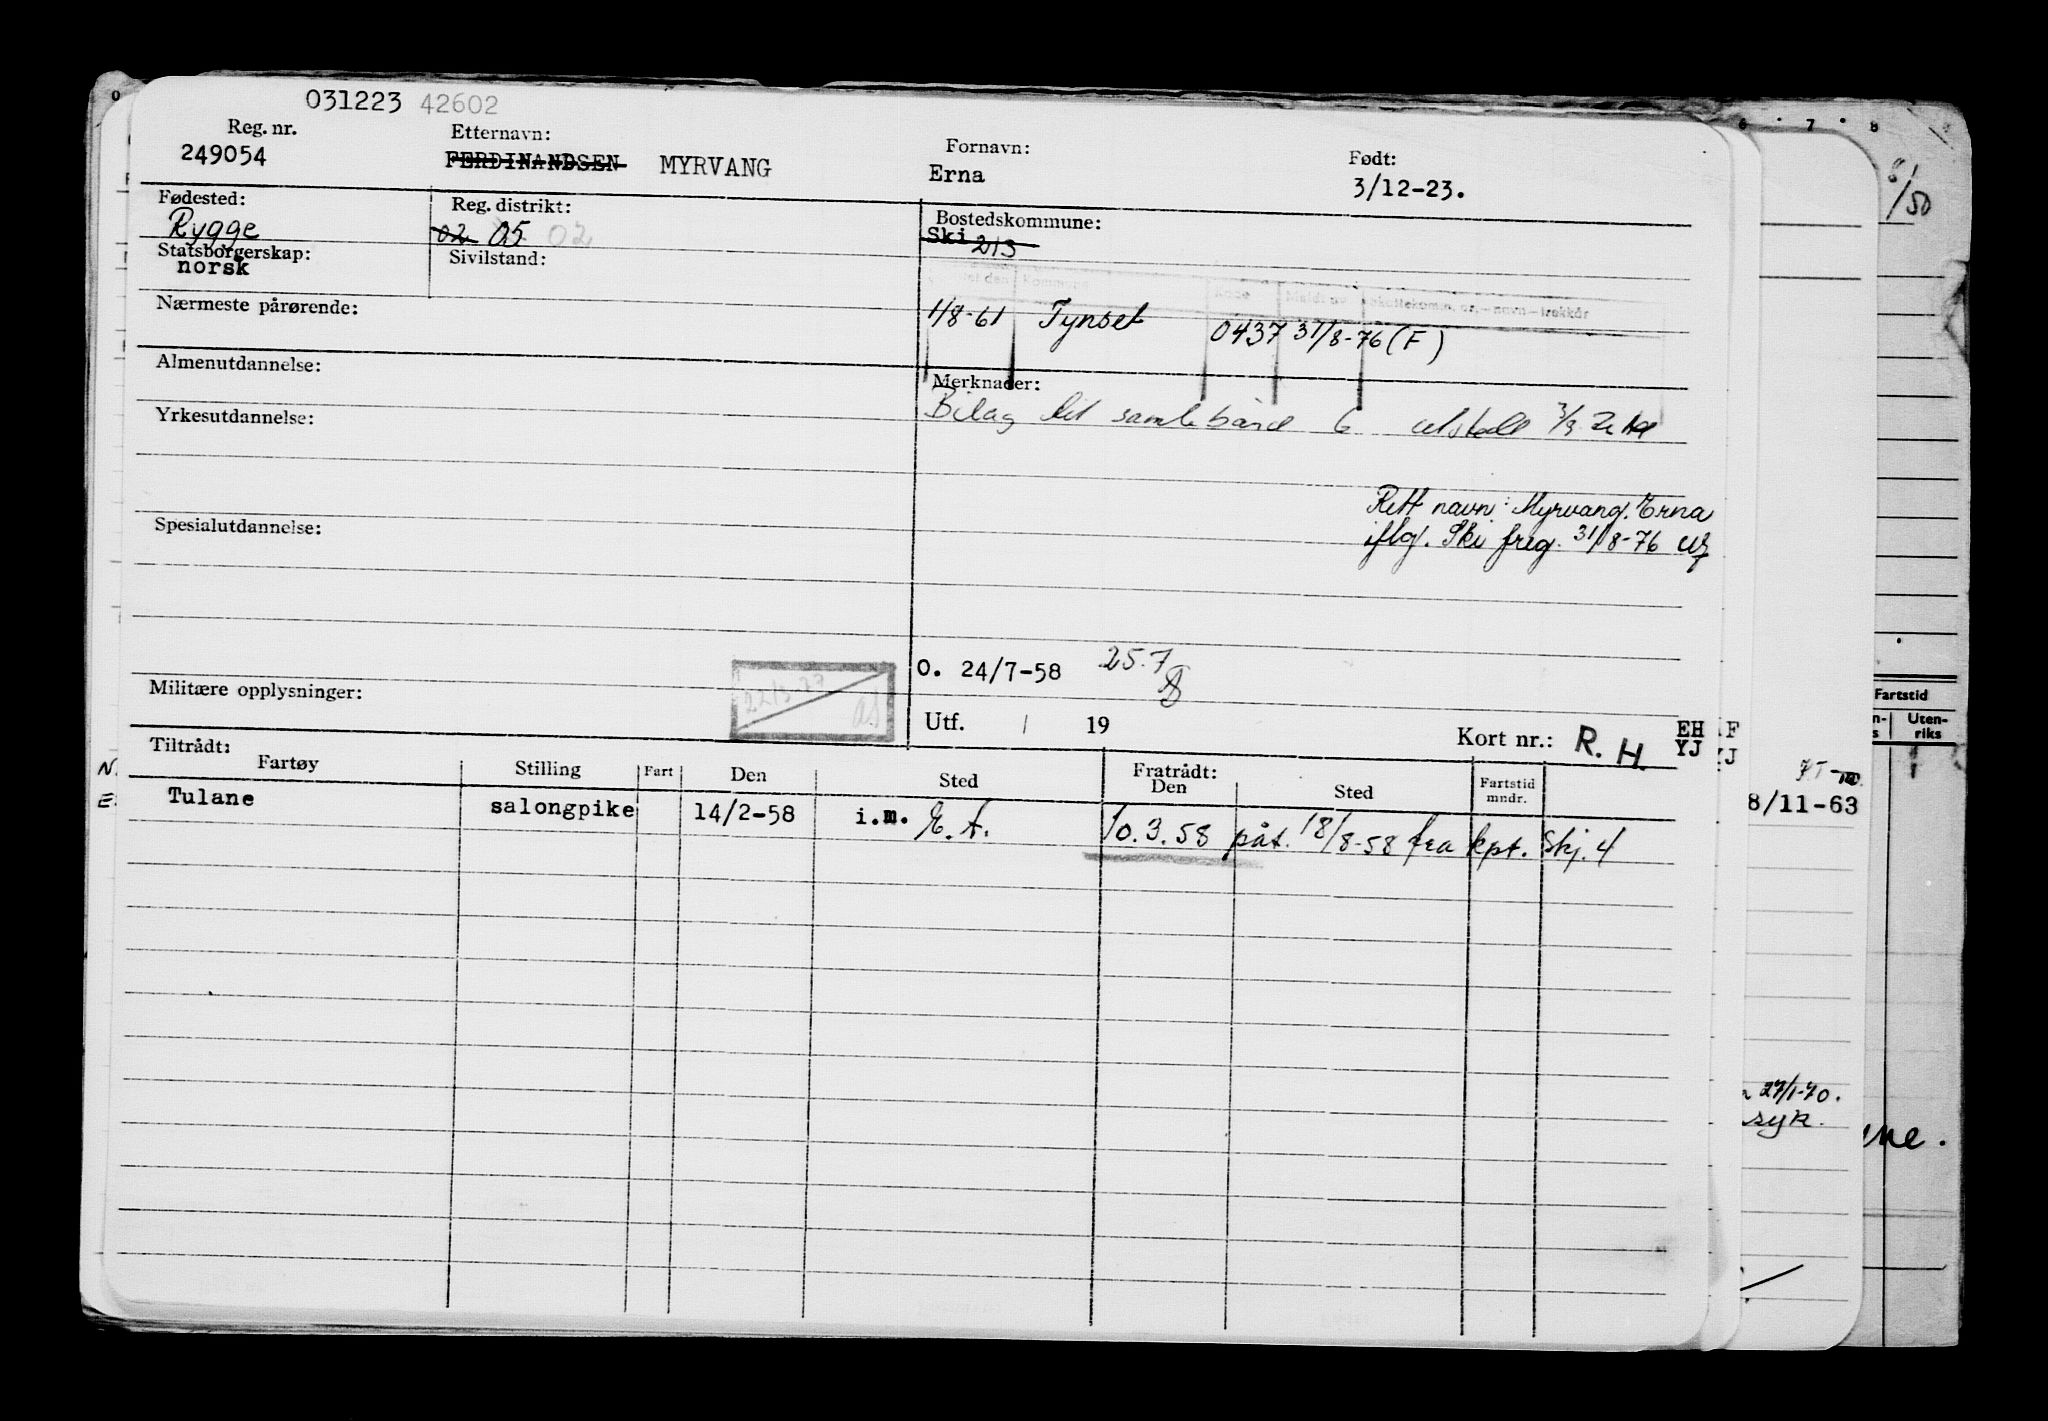 031223 42602
Reg. nr. Etternavn: Fornavn: Født:
249054 FERDINANDSEN MYRVANG Erna 3/12-23.
Fødested: Reg. distrikt: Bostedskommune:
Rygge 02 05 02 Ski 213
Statsborgerskap: Sivilstand:
norsk
Nærmeste pårørende:
1/8-61 Tynset 0437 31/8-76 (F)
Almenutdannelse: Merknader:
Bilag til samlebånd 6 utsted
Yrkesutdannelse:
Rett navn: Myrvang, Erna
iflg. Ski freg. 31/8-76
Spesialutdannelse:
O. 24/7-58 25.7
Militære opplysninger:
Utf. / 19 Kort nr.: R. H. EH F
YJ YJ
Tiltrådt: Fratrådt:
Fartøy Stilling Fart Den Sted Den Sted Fartstid mndr.
Tulane salongpike 14/2-58 i.m. E. A. 10.3.58 påt. 18/8-58 fra kpt. Skj. 4
6 7 8
/50
Fartstid
Uten-
riks
8/11-63
27/1-70.
syk.